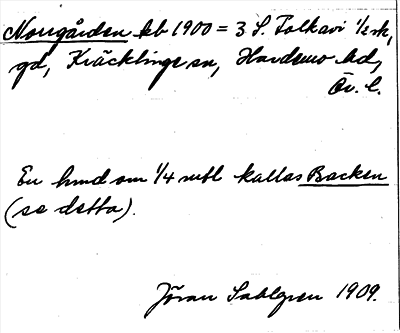 Norrgården kb 1900 = 3 S. Folkavi 1/2 sk,
gd, Kräcklinge sn, Hardemo hd,
Ör. l.
En hmd om 1/4 mtl kallas Backen
(se detta).
Jöran Sahlgren 1909.